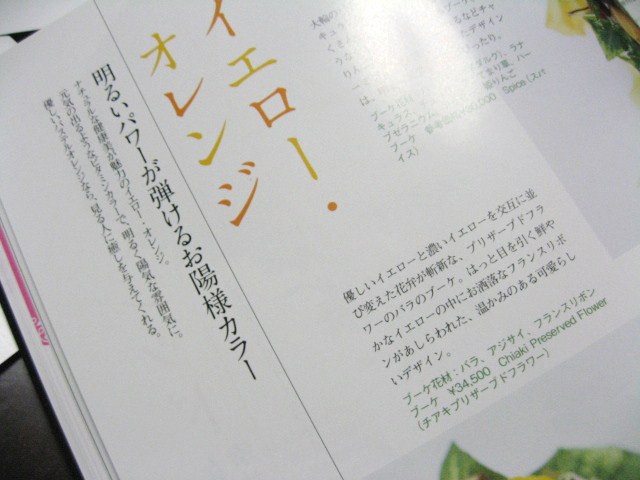 イエロー・
オレンジ
明るいパワーが弾けるお陽様カラー
ナチュラルな健康美が魅力のイエロー・オレンジ。
元気が出るようなビタミンカラーで、明るく陽気な雰囲気に。
優しいパステルオレンジなら、見る人に癒しを与えてくれる。
優しいイエローと濃いイエローを交互に並
び変えた花弁が斬新な、プリザーブドフラ
ワーのバラのブーケ。はっと目を引く鮮や
かなイエローの中にお洒落なフランスリボ
ンがあしらわれた、温かみのある可愛らし
いデザイン。
ブーケ花材:バラ、アジサイ、フランスリボン
ブーケ ¥34,500 Chiaki Preserved Flower
(チアキプリザーブドフラワー)